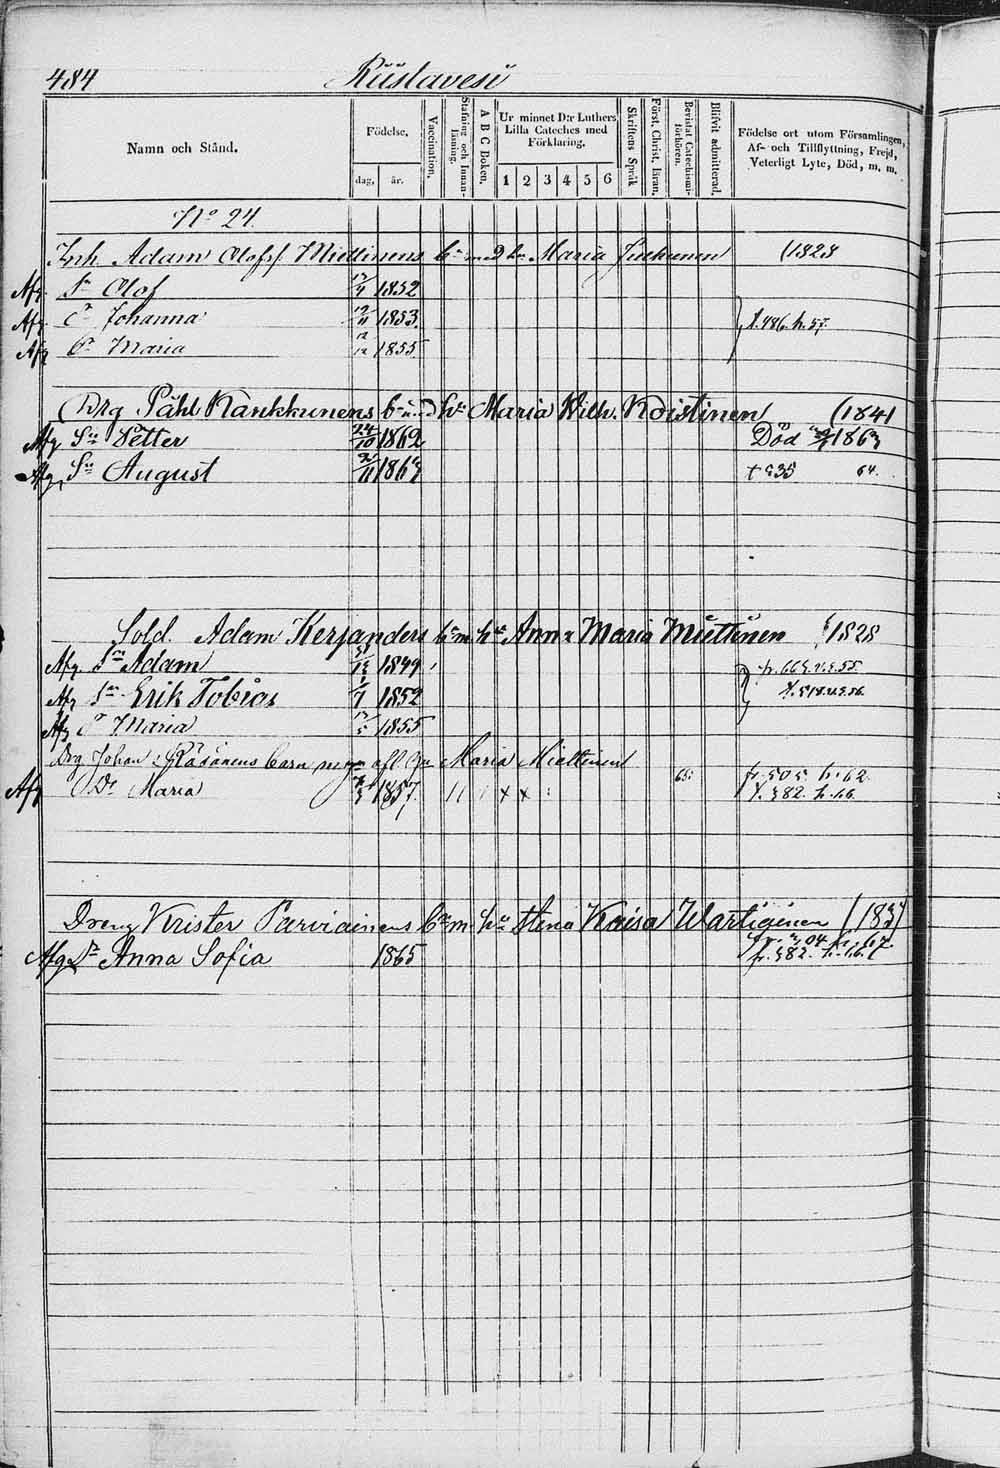 484 Riistavesi
Namn och Stånd.
Födelse.
dag. år.
Vaccination.
Stafning och Innan-läsning.
A B C Boken.
Ur minnet D:r Luthers
Lilla Cateches med
Förklaring.
1 2 3 4 5 6
Skriftens Språk
Först. Christ. Läran.
Bevistat Catechismi-förhören.
Blifvit admitterad.
Födelse ort utom Församlingen,
Af- och Tillflyttning, Frejd,
Veterligt Lyte, Död, m. m.
No 24.
Inh. Adam Olofs/ Miettinens bn med hu Maria (1828
Afg Sn Olof 1852
Afg Dr Johanna 1853 f. 486. h. 57.
Afg Dr Maria 12/12 1855
Drg Påhl Kankkunens bn und hu Maria Wilh. Koistinen (1841
Afg Sn Petter 24/10 1862 Död 1863
Afg. Sn August 1863 64.
Sold. Adam Kerjanders bn m. hu Anna Maria Miettinen 1828
Afg. Sn Adam 1849
Afg Sn Erik Tobias 1/7 1852
Afg Dr Maria 1855
Drg Johan Räsänens barn med afl. hu Maria Miettinen
Afg Dr Maria 1857 65 fr. 505 h. 62
f. 382. h. 66.
Dreng Krister Parviainens bn m. hu Stina Kaisa Wartiainen
Afg Dr Anna Sofia 1865 fr. 382. h. 66.